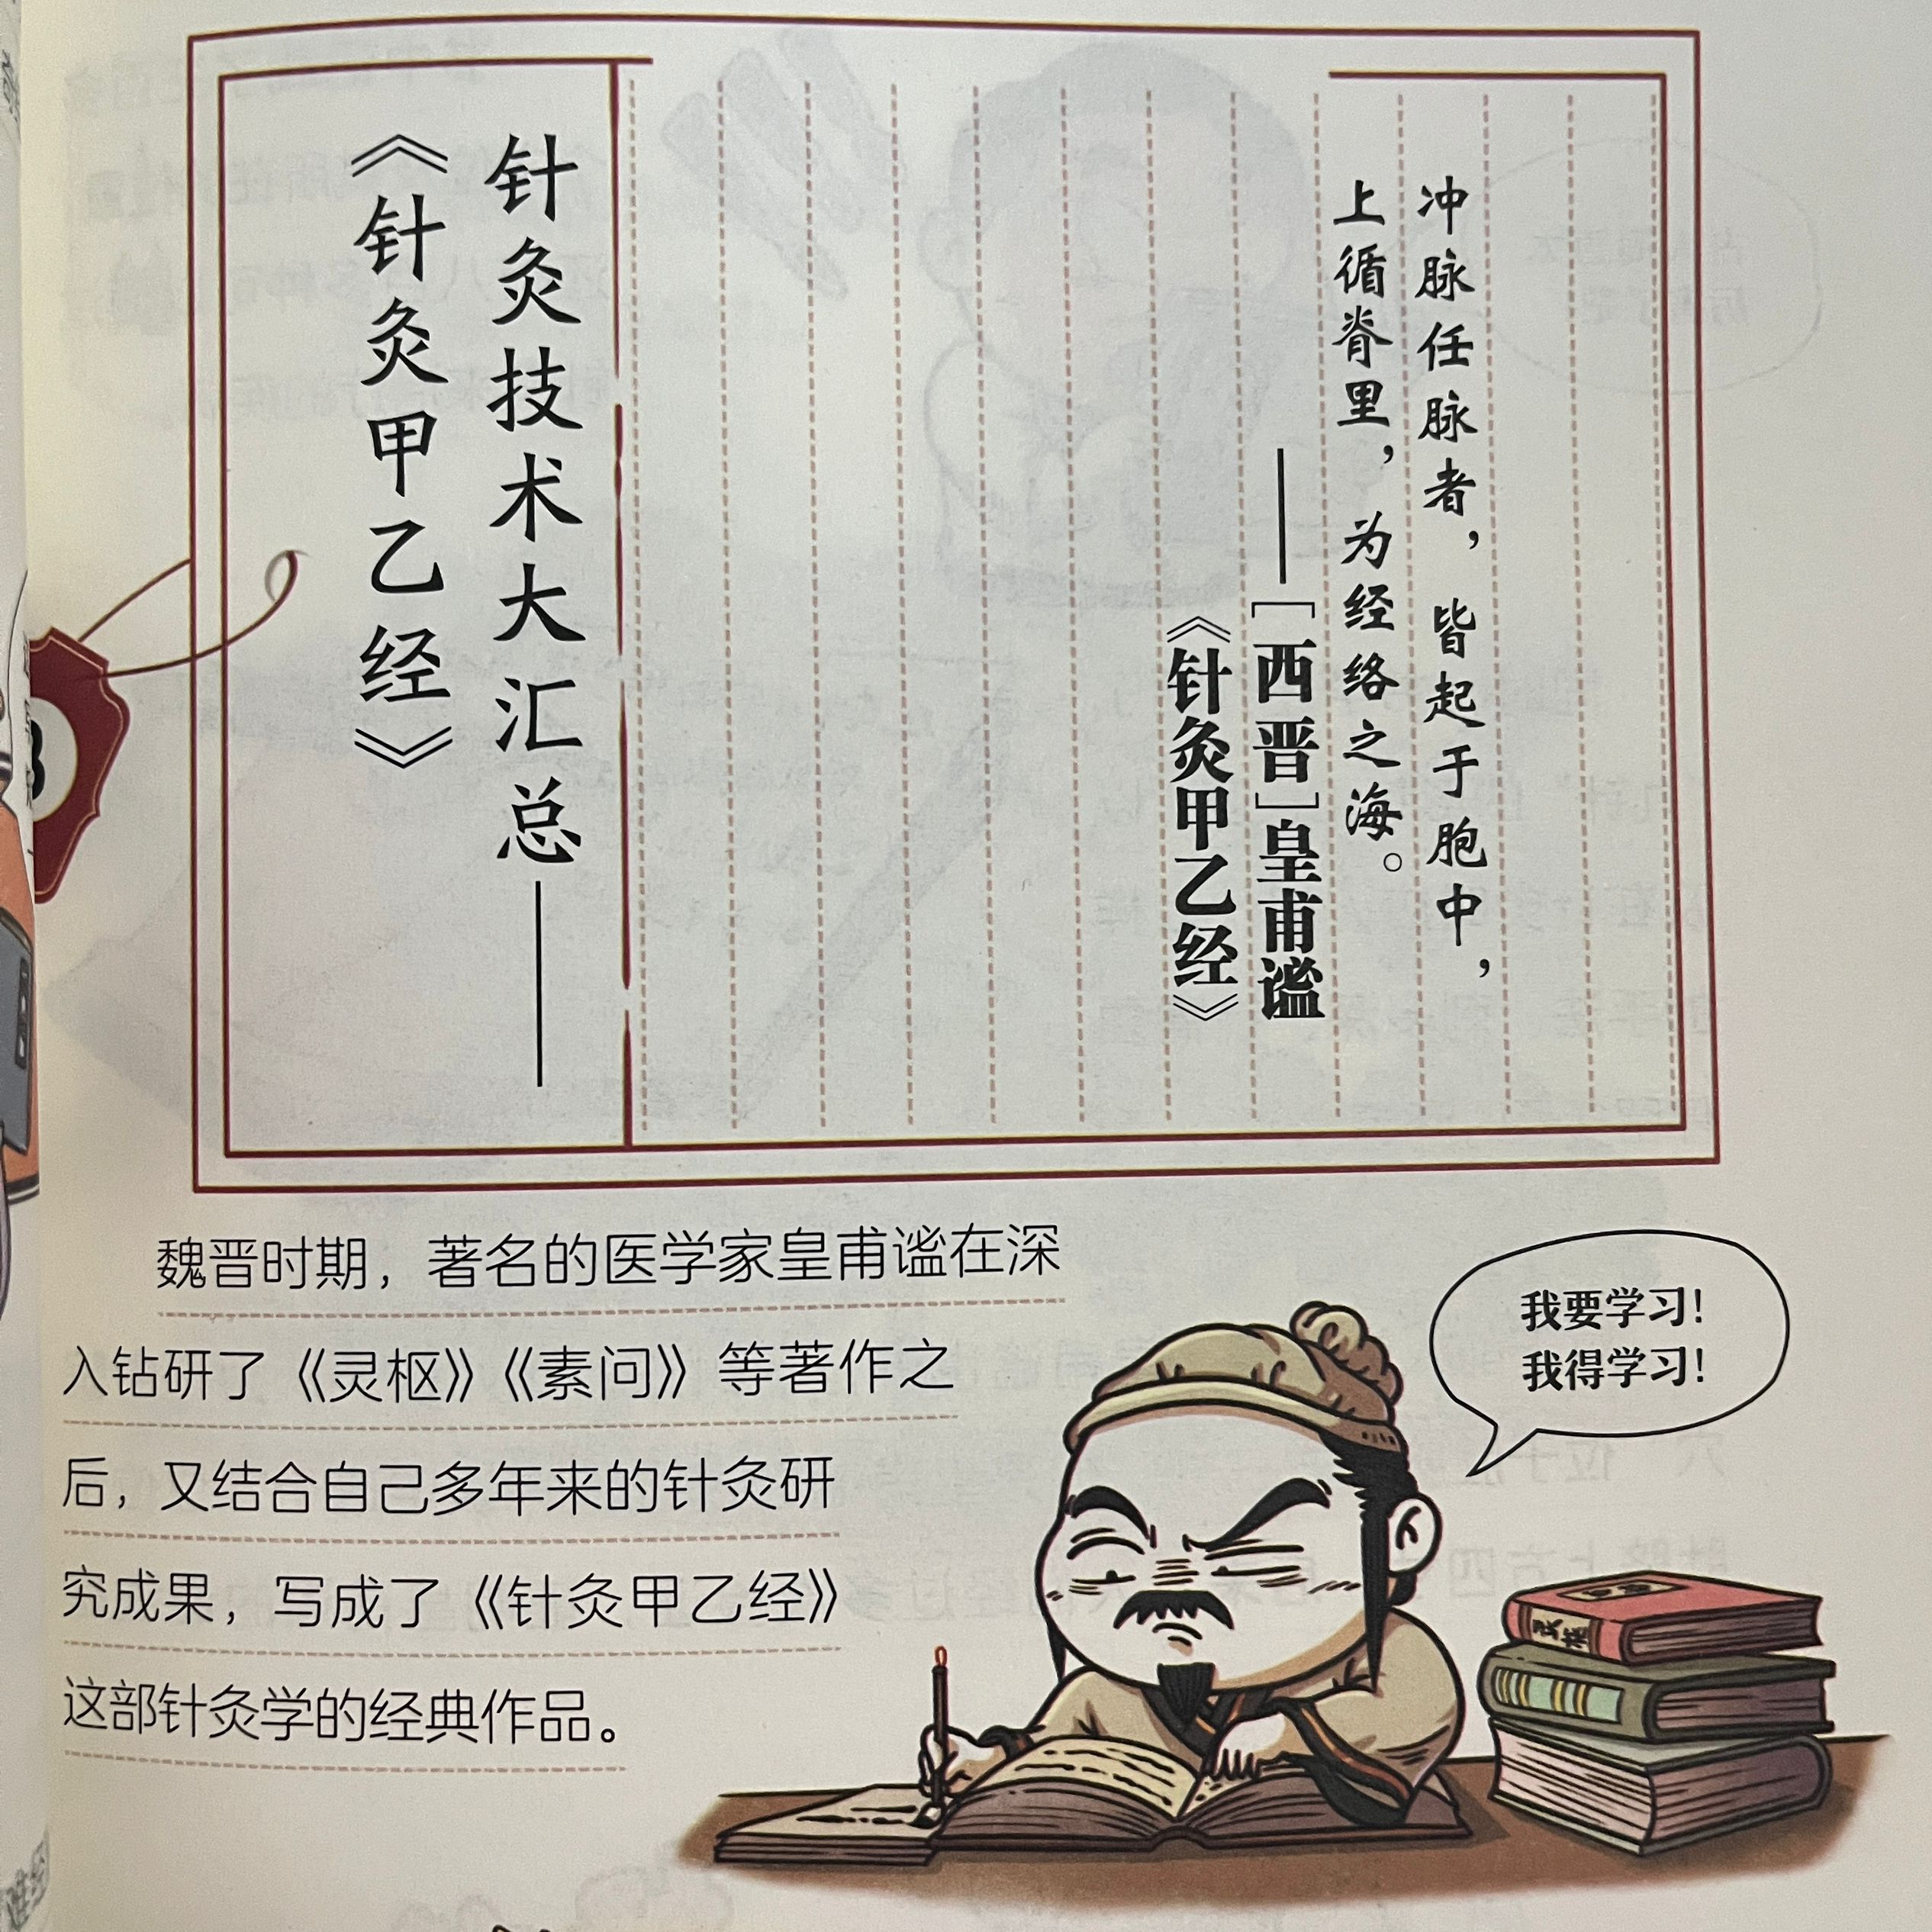 针灸技术大汇总——
《针灸甲乙经》
冲脉任脉者，皆起于胞中，
上循脊里，为经络之海。
——[西晋]皇甫谧
《针灸甲乙经》
魏晋时期，著名的医学家皇甫谧在深
入钻研了《灵枢》《素问》等著作之
后，又结合自己多年来的针灸研
究成果，写成了《针灸甲乙经》
这部针灸学的经典作品。
我要学习！
我得学习！
灵枢